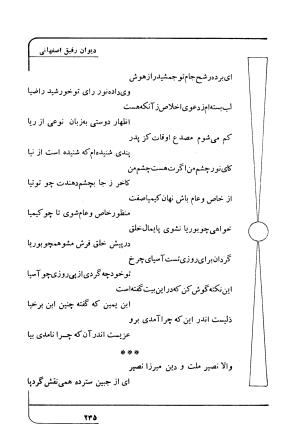 دیوان رفیق اصفهانی
ای برده رشح جام تو جمشید راز هوش
وی داده نور رای تو خورشید راضیا
لب بسته ام ز دعوی اخلاص ز آنکه هست
اظهار دوستی به زبان نوعی از ریا
کم می شوم مصدع اوقات کز پدر
پندی شنیده ام که شنیده است از نیا
کای نور چشم من اگرت هست چشم من
کاخر ز جا بچشم دهندت چو توتیا
از خاص و عام باش نهان کیمیا صفت
منظور خاص و عام شوی تا چو کیمیا
خواهی چو بوریا نشوی پایمال خلق
در پیش خلق فرش مشو همچو بوریا
گردان برای روزی تست آسیای چرخ
تو خود چه گردی از پی روزی چو آسیا
این نکته گوش کن که در این بیت گفته است
ابن یمین که گفته چنین ابن برخیا
ذلیست اندر این که چرا آمدی برو
عزیست اندر آن که چرا نامدی بیا
***
والا نصیر ملت و دین میرزا نصیر
ای از جبین سترده همی نقش گرد پا
۲۳۵